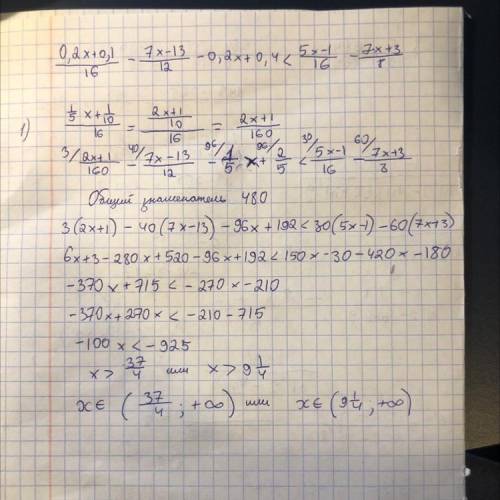 (0,2x+0,1)/16 - (7x-13)/12 - 0,2x+0,4 < (5x-1)/16 - (7x+3)/8
1) (1/5 x + 1/10)/16 = ((2x+1)/10)/16 = (2x+1)/160
3/ (2x+1)/160 - 40/ (7x-13)/12 - 96/ 1/5 x + 96/ 2/5 < 30/ (5x-1)/16 - 60/ (7x+3)/8
Общий знаменатель 480
3(2x+1) - 40(7x-13) - 96x + 192 < 30(5x-1) - 60(7x+3)
6x+3-280x+520-96x+192<150x-30-420x-180
-370x+715<-270x-210
-370x+270x<-210-715
-100x<-925
x > 37/4 или x > 9 1/4
x ∈ (37/4; +∞) или x ∈ (9 1/4; +∞)